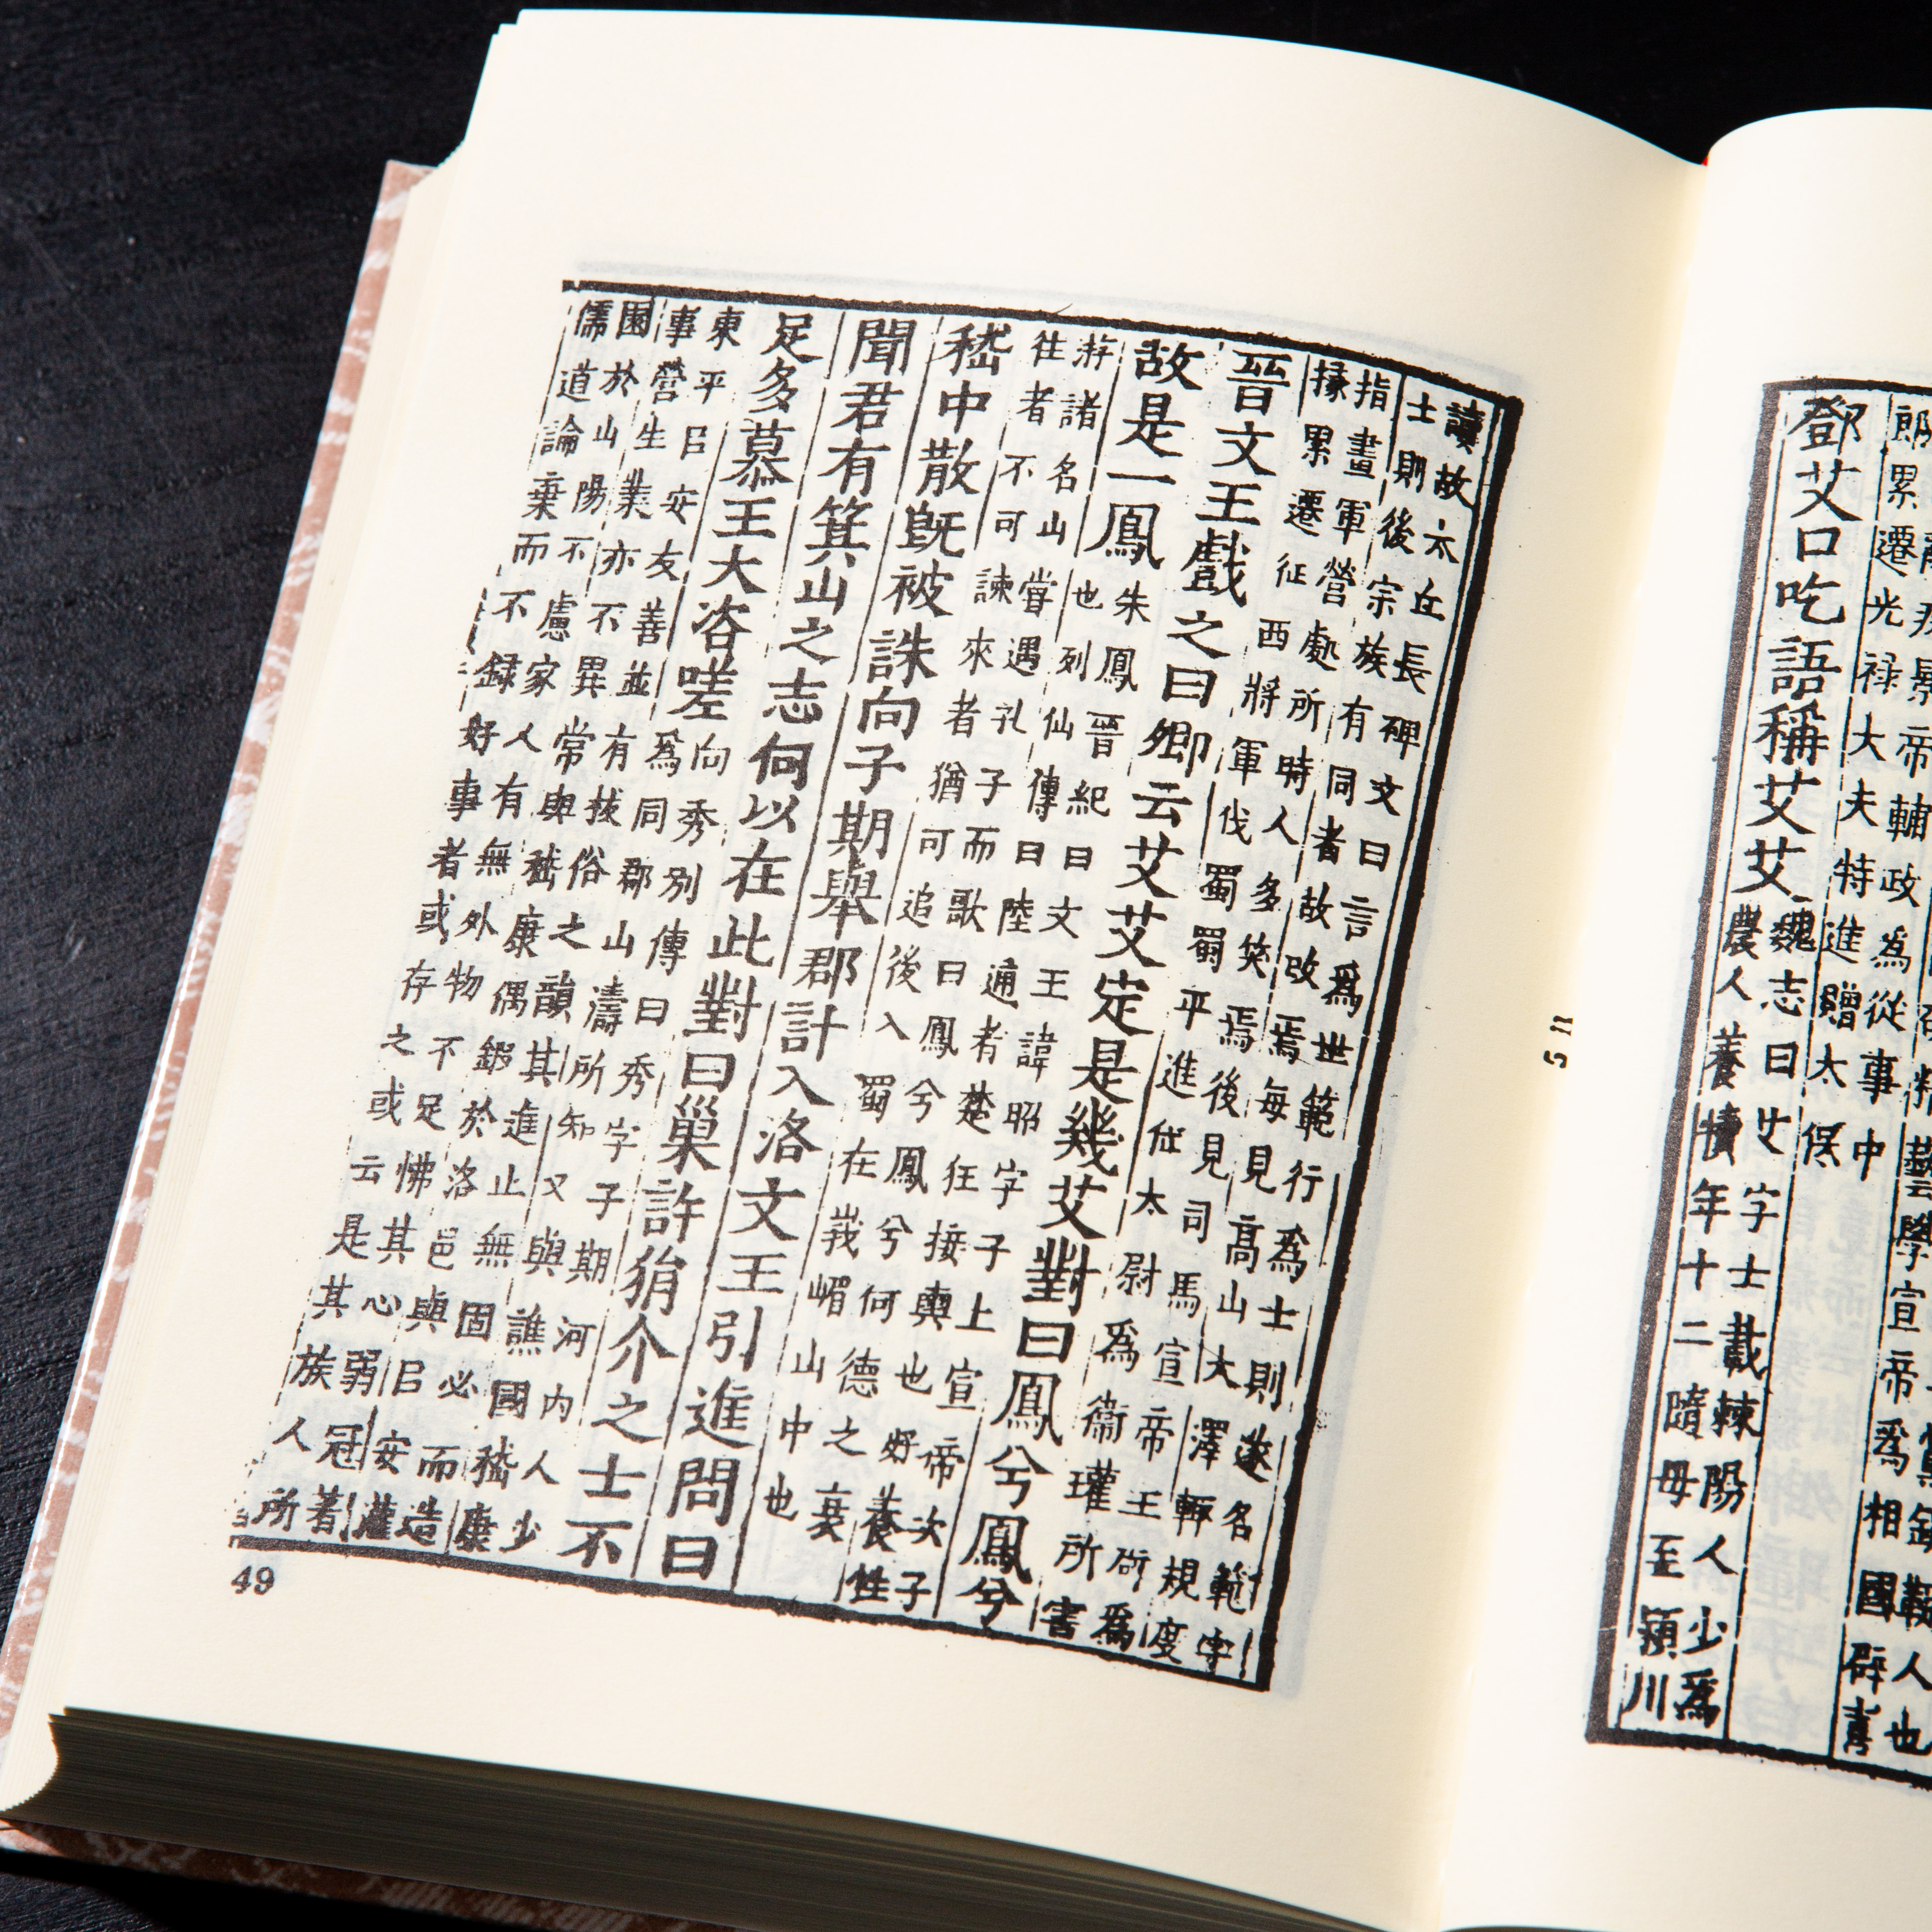 藝學宣帝為相國辟喜
景帝輔政為從事中
郎累遷光禄大夫特進贈太保
鄧艾口吃語稱艾艾
魏志曰艾字士載棘陽人少爲
農人養犢年十二隨母至潁川
讀故太丘長碑文曰言爲世範行爲士則遂名範字
士則後宗族有同者故改焉每見高山大澤輒規度
指畫軍營處所時人多笑焉後見司馬宣帝王爲
掾累遷征西將軍伐蜀蜀平進位太尉爲衞瓘所害
晉文王戲之曰卿云艾艾定是幾艾對曰鳳兮鳳兮
故是一鳳
朱鳳晉紀曰文王諱昭字子上宣帝次子
也列仙傳曰陸通者楚狂接輿也好養性
游諸名山嘗遇孔子而歌曰鳳兮鳳兮何德之衰
往者不可諫來者猶可追後入蜀在峩嵋山中也
嵇中散旣被誅向子期舉郡計入洛文王引進問曰
聞君有箕山之志何以在此對曰巢許狷介之士不
足多慕王大咨嗟
向秀別傳曰秀字子期河內人少
爲同郡山濤所知又與譙國嵇康
東平呂安友善並有拔俗之韻其進止無固必而造
事營生業亦不異常與嵇康偶鍛於洛邑與呂安灌
園於山陽不慮家人有無外物不足怫其心弱冠著
儒道論棄而不録好事者或存之或云是其族人所
49